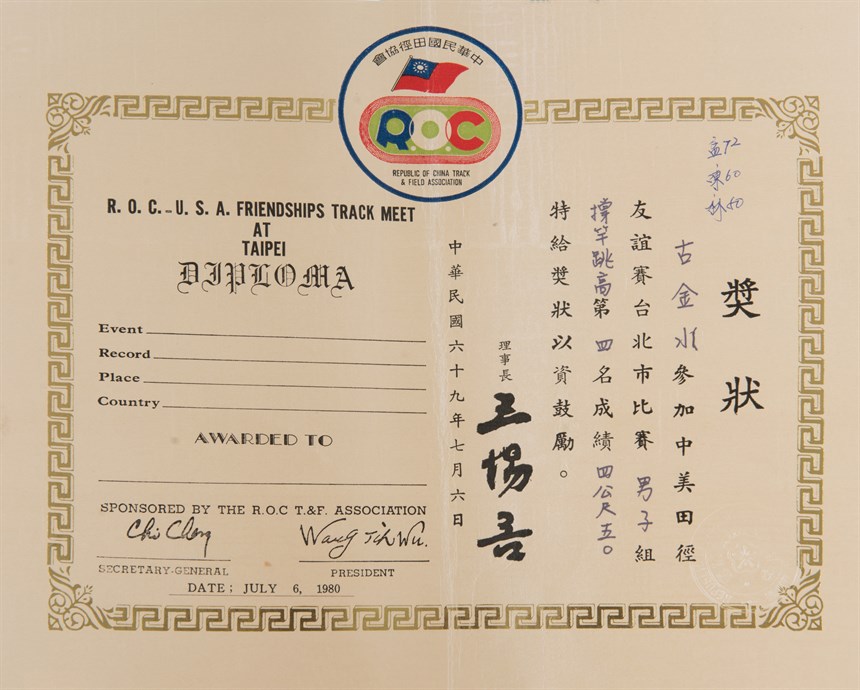 中華民國田徑協會
R.O.C
REPUBLIC OF CHINA TRACK
& FIELD ASSOCIATION
R. O. C. - U. S. A. FRIENDSHIPS TRACK MEET
AT
TAIPEI
DIPLOMA
Event
Record
Place
Country
AWARDED TO
SPONSORED BY THE R.O.C T.&F. ASSOCIATION
Chi Cheng
Wang Tih Wu.
SECRETARY-GENERAL
PRESIDENT
DATE; JULY 6, 1980
獎狀
古金水參加中美田徑
友誼賽台北市比賽男子組
撐竿跳高第四名成績四公尺五〇
特給獎狀以資鼓勵。
理事長
王惕吾
中華民國六十九年七月六日
孟72
陳60
林80